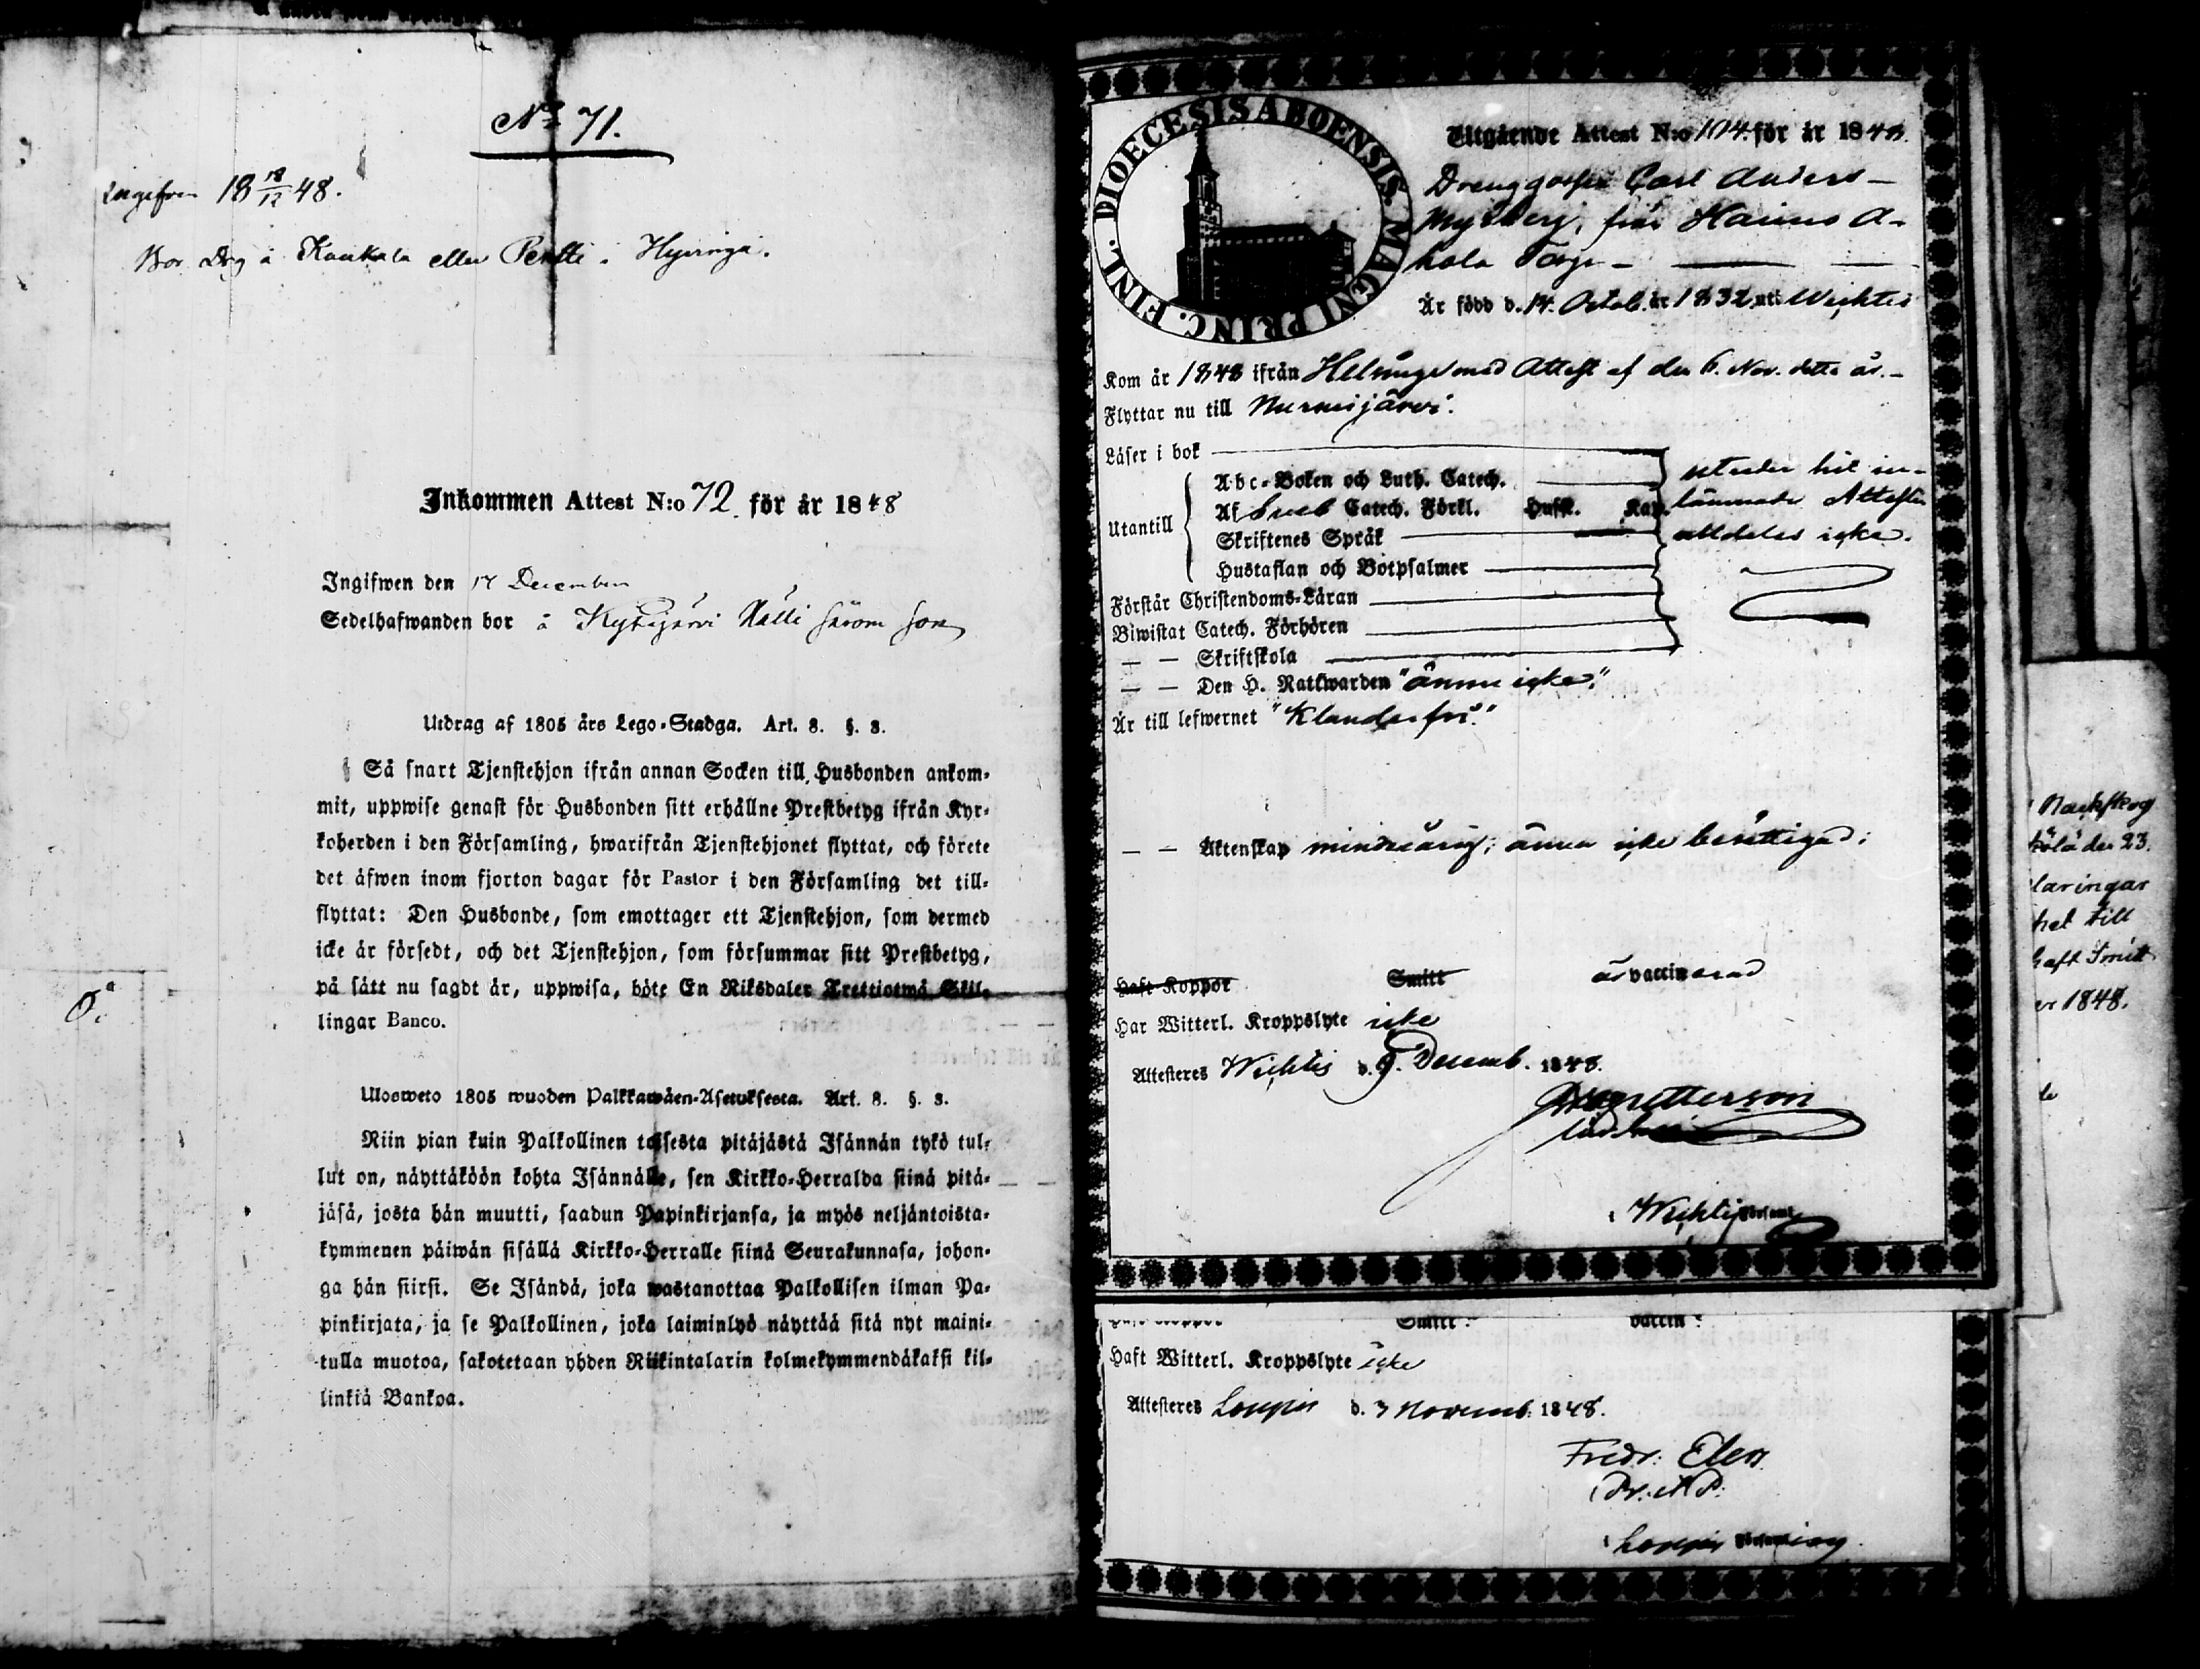 No 71.
18 18/12 48.
Bor Drg å Kaukala eller Pentti i Hyvinge.
Inkommen Attest N:o 72. för år 1848
Ingifwen den 17 December
Sedelhafwanden bor å Kytäjärvi Nälli såsom son
Utdrag af 1805 års Lego-Stadga. Art. 8. §. 3.
Så snart Tjenstehjon ifrån annan Socken till Husbonden ankom-
mit, uppwise genast för Husbonden sitt erhållne Prestbetyg ifrån Kyr-
koherden i den Församling, hwarifrån Tjenstehjonet flyttat, och förete
det äfwen inom fjorton dagar för Pastor i den Församling det till-
flyttat: Den Husbonde, som emottager ett Tjenstehjon, som dermed
icke är försedt, och det Tjenstehjon, som försummar sitt Prestbetyg,
på sätt nu sagdt är, uppwisa, böte En Riksdaler Trettiotwå Skil-
lingar Banco.
Ulosweto 1805 wuoden Palkkawäen-Asetuksesta. Art. 8. §. 3.
Niin pian kuin Palkollinen toisesta pitäjästä Isännän tykö tul-
lut on, näyttäköön kohta Isännälle, sen Kirkko-Herralda siinä pitä-
jäsä, josta hän muutti, saadun Papinkirjansa, ja myös neljäntoista-
kymmenen päiwän sisällä Kirkko-Herralle siinä Seurakunnasa, johon-
ga hän siirsi. Se Isändä, joka wastanottaa Palkollisen ilman Pa-
pinkirjata, ja se Palkollinen, joka laiminlyö näyttää sitä nyt maini-
tulla muotoa, sakotetaan yhden Riikintalarin kolmekymmendäkaksi kil-
linkiä Bankoa.
DIOECESIS ABOENSIS. MAGNI PRINC. FINL.
Utgående Attest N:o 104. för år 1848.
Drenggosse Carl Anders
Myrberg, från Haimo A-
hola Torp
Är född d. 14. Octob. år 1832 uti Wichtis
Kom år 1848 ifrån Helsinge med Attest af den 6. Nov. detta år.
Flyttar nu till Nurmijärvi.
Läser i bok
utsedes hit in-
Abc-Boken och Luth. Catech.
Utantill
Af Sveb Catech. Förkl. Husfl. Kap.
lämnade Attesten
Skriftenes Språk
alldeles icke.
Hustaflan och Botpsalmer
Förstår Christendoms-Läran
Biwistat Catech. Förhören
— — Skriftskola
— — Den H. Nattwarden "ännu icke."
Är till lefwernet "Klanderfri."
— — Äktenskap minderårig; ännu icke berättigad;
Haft Koppor Smitt är vaccinerad
Har Witterl. Kroppslyte icke
Attesteres Wichtis d. 9. Decemb. 1848.
i Wichtis Församl.
Smitt: vaccin:
Haft Witterl. Kroppslyte icke
Attesteres Loppis d. 3 Novemb. 1848.
Fredr: Elers
i Loppis Församling.
den 23.
laringar
till
haft Smitt
1848.